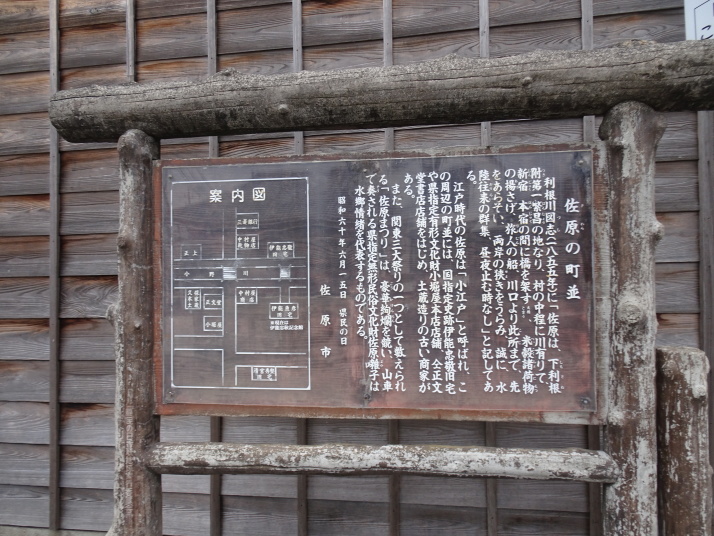 佐原の町並
利根川図志(一八五五年)に「佐原は、下利根
附第一繁昌の地なり、村の中程に川有りて
新宿 本宿の間に橋を架す。 米穀諸荷物
の揚さげ、旅人の船、川口より此所まで、先
をあらそい、両岸の狭きをうらみ、誠に、水
陸往来の群集、昼夜止む時なし」と記してあ
る。
江戸時代の佐原は「小江戸」と呼ばれ、こ
の周辺の町並には、国指定史跡伊能忠敬旧宅
や県指定有形文化財小堀屋本店店舗、仝正文
堂書店店舗をはじめ、土蔵造りの古い商家が
ある。
また、関東三大祭りの一つとして数えられ
る「佐原まつり」は、豪華絢爛を競い、山車
で奏される県指定無形民俗文化財佐原囃子は
水郷情緒を代表するものである。
昭和六十年六月一五日 県民の日
佐原市
案内図
三菱銀行
中村屋
伊能忠敬
旧宅
正上
小野川
正文堂
小堀屋
中村屋
商店
旧宅